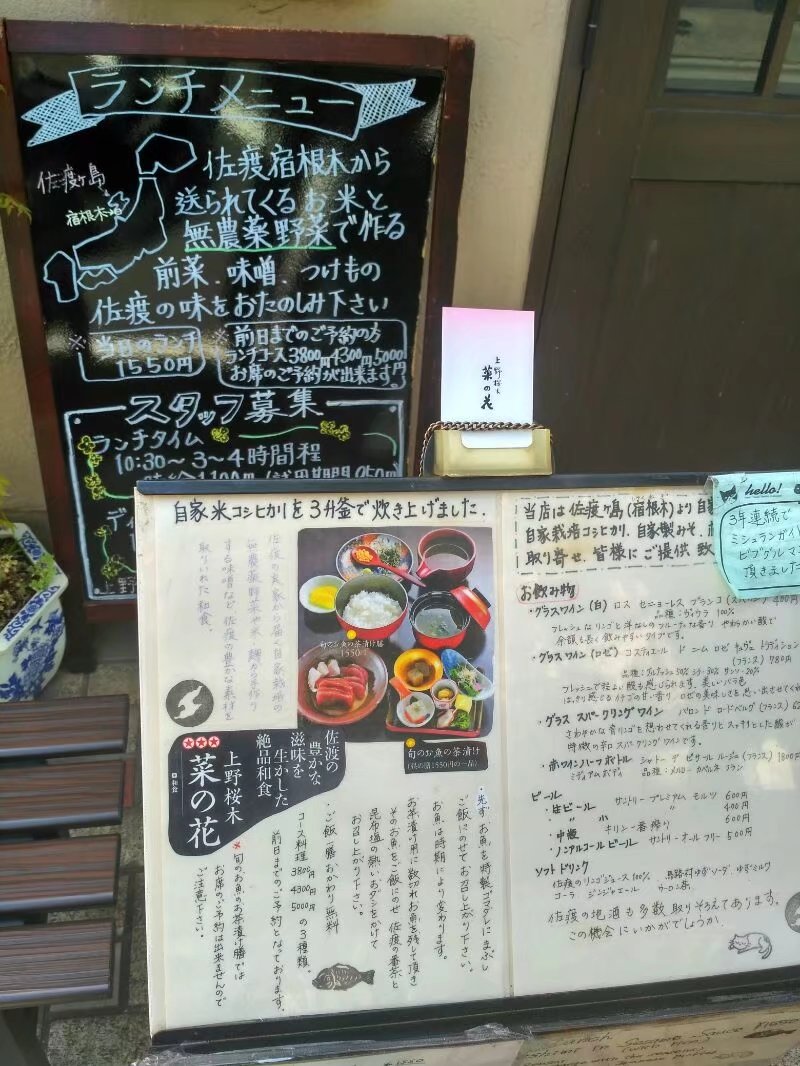 ランチメニュー
佐渡ヶ島
宿根木
佐渡宿根木から
送られてくるお米と
無農薬野菜で作る
前菜.味噌.つけもの
佐渡の味をおたのしみ下さい
※当日のランチ
1550円
※前日までのご予約の方
ランチコース3800円4300円5000円
お席のご予約が出来ます。
スタッフ募集
ランチタイム
10:30～3～4時間程
上野桜木
菜の花
自家米コシヒカリを3升釜で炊き上げました.
佐渡の農家から届く自家栽培の
無農薬野菜や米、麹から手作り
する味噌など佐渡の豊かな素材を
取りいれた和食。
旬のお魚の茶漬け膳
1550円
旬のお魚の茶漬け
佐渡の
豊かな
滋味を
生かした
絶品和食
上野桜木
菜の花
和食
・先ず、お魚を特製ゴマダレにまぶし
ご飯にのせてお召し上がり下さい。
お魚は時期により変わります。
・お茶漬け用に数切れお魚を残して頂き
そのお魚をご飯にのせ佐渡の番茶と
昆布塩の熱いおダシをかけて
お召し上がり下さい。
・ご飯一膳おかわり無料
コース料理 3800円 4300円 5000円 の3種類。
前日までのご予約となっております。
※旬のお魚のお茶漬け膳では
お席のご予約は出来ませんので
ご注意下さい。
当店は佐渡ヶ島(宿根木)より自家
自家栽培コシヒカリ、自家製みそ、
取り寄せ、皆様にご提供致
hello!
3年連続で
ミシュランガイド
ビブグルマン
頂きました
お飲み物
・グラスワイン(白) ロス セニョーレス ブランコ(スペイン) 400円
フレッシュなリンゴと洋なしのフルーティな香り やわらかい酸で
余韻も長く飲みやすいタイプです。
・グラスワイン(ロゼ)
(フランス) 780円
・グラス スパークリングワイン
さわやかな青リンゴを想わせてくれる香りとスッキリとした酸が
特徴の辛口スパークリングワインです。
・赤ワインハーフボトル シャトー デ ピサール ルージュ(フランス) 1800円
ミディアムボディ 品種:メルロー カベルネフラン
ビール
・生ビール サントリープレミアム モルツ 600円
〃 小 〃 400円
・中瓶 キリン一番搾り 600円
・ノンアルコールビール サントリーオールフリー 500円
ソフトドリンク
佐渡のリンゴジュース100% 馬路村ゆずソーダ ゆずミルク
コーラ ジンジャエール ウーロン茶
佐渡の地酒も多数取りそろえてあります。
この機会にいかがでしょうか。